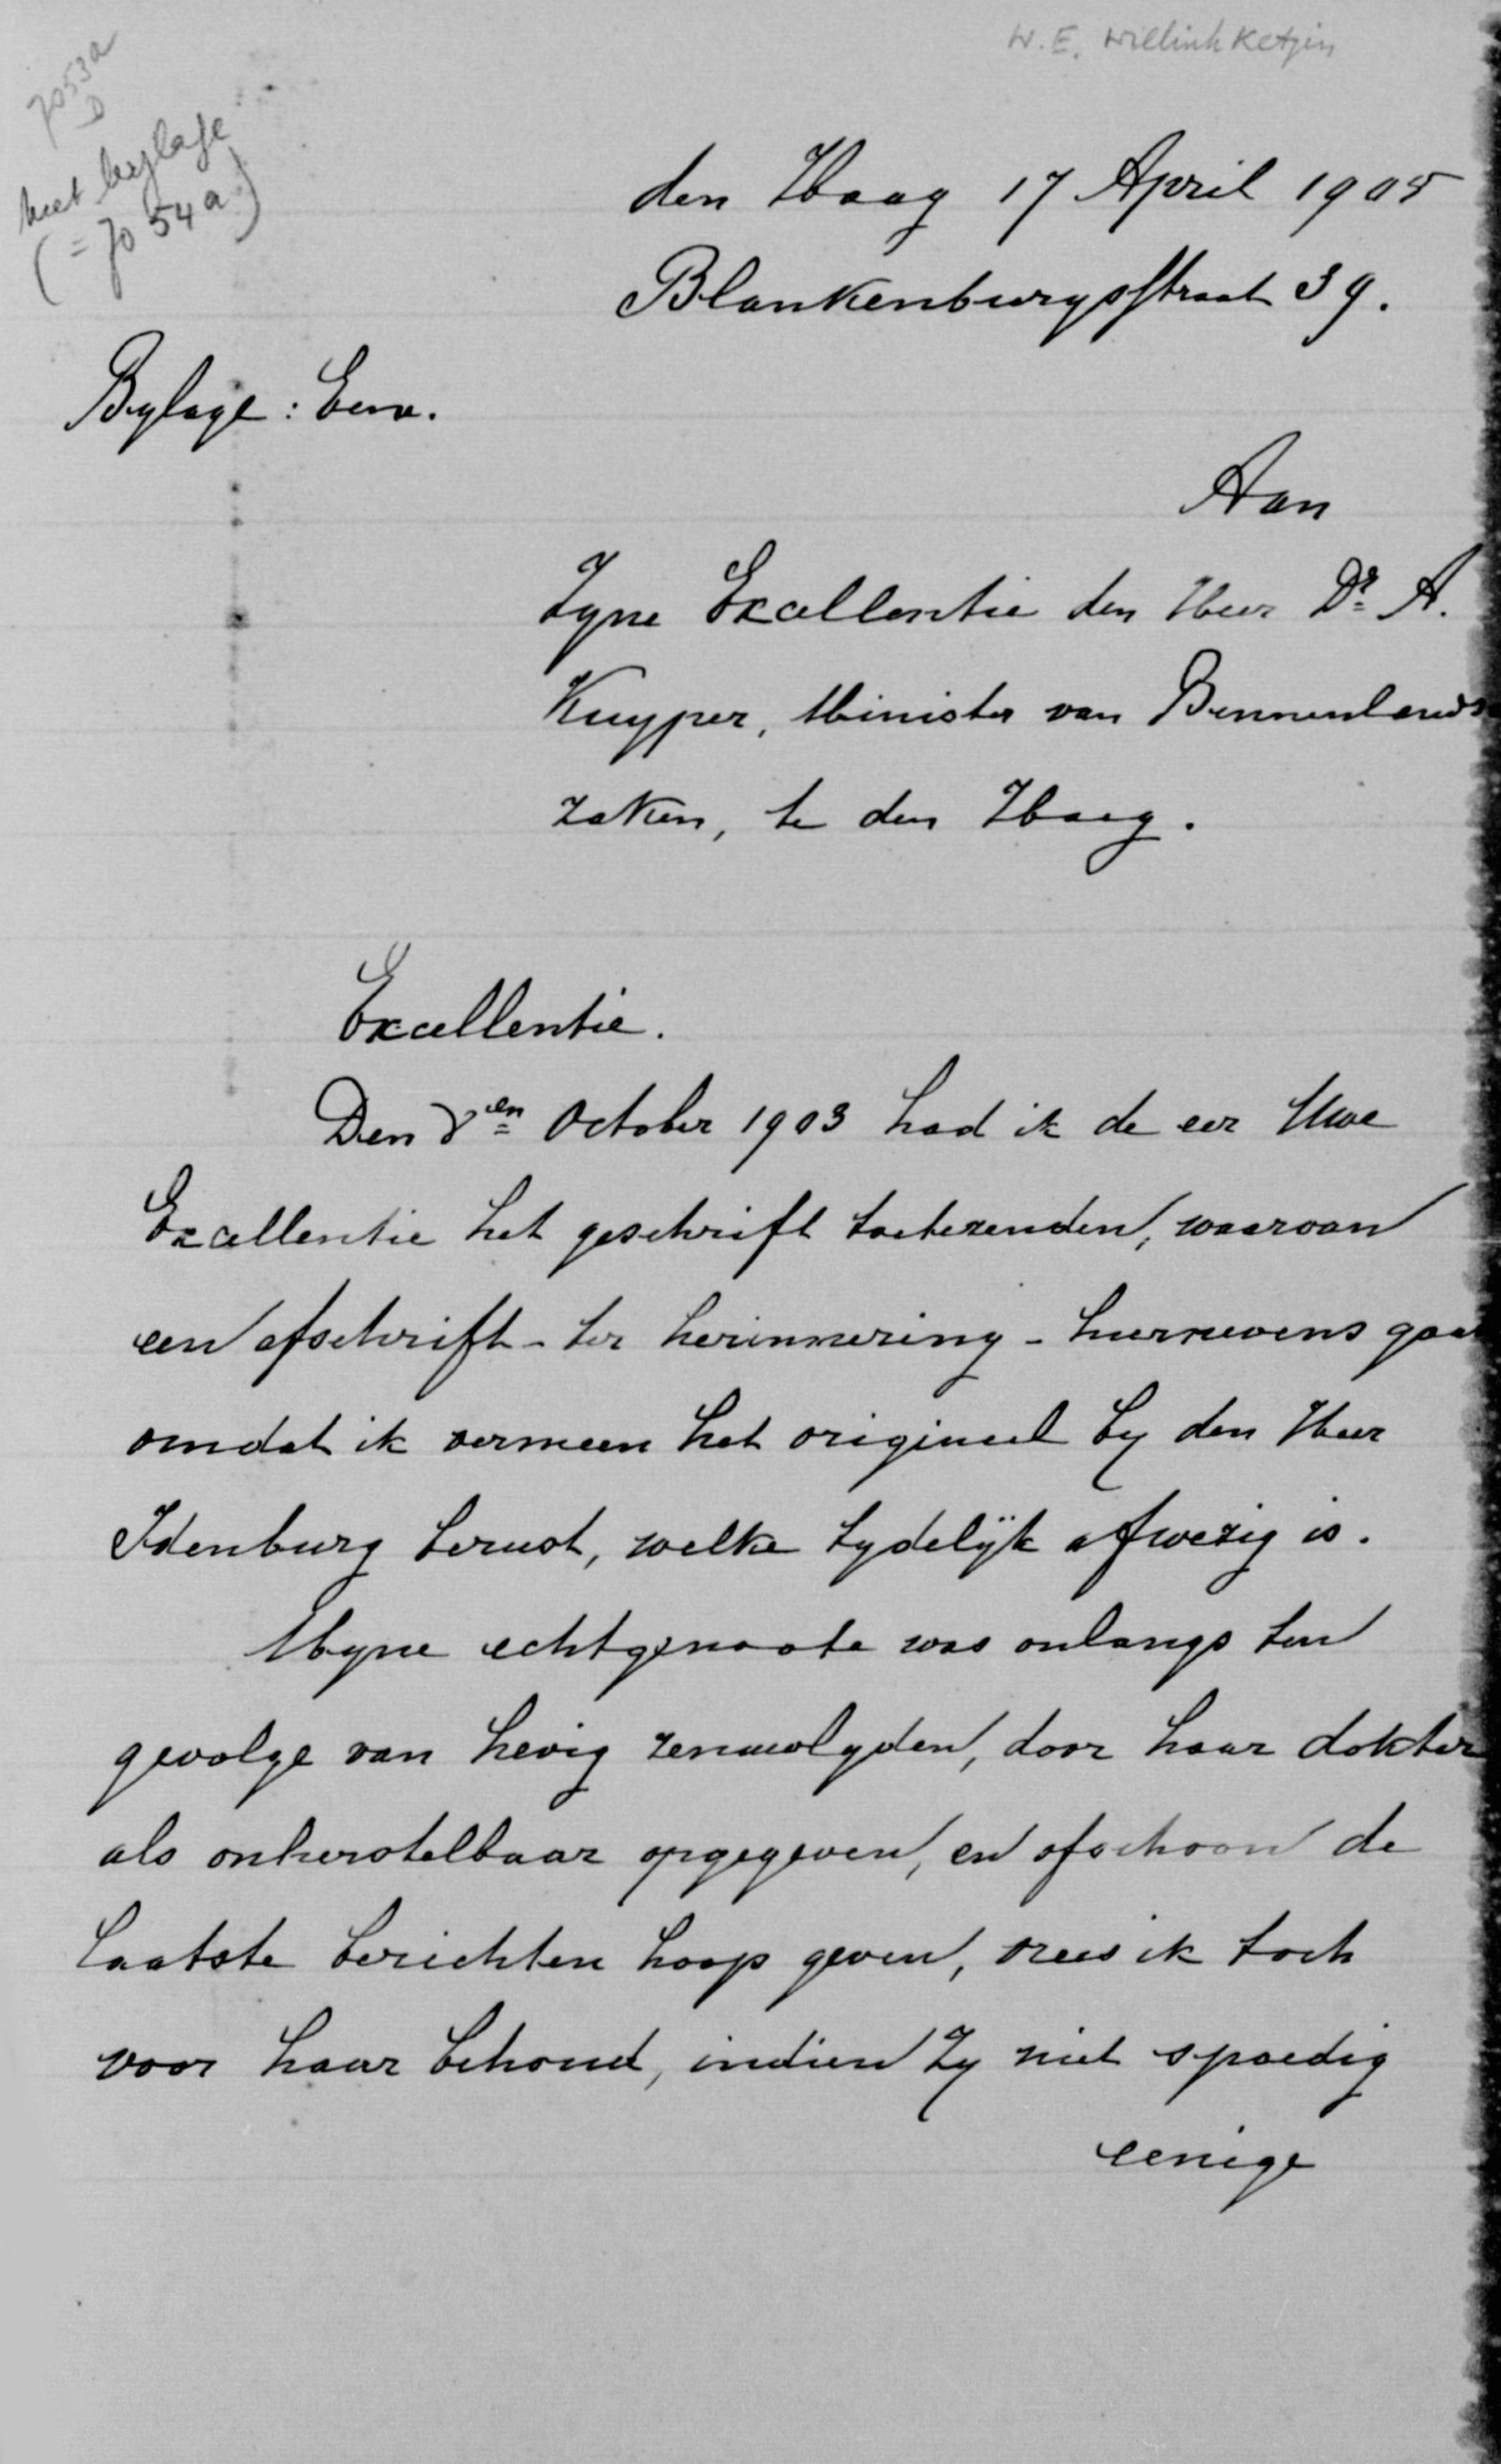 W.E. Willink Ketjen
7053a
D
met bijlage
(= 7054a)
den Haag 17 April 1905
Blankenburgstraat 39.
Bylage: Eene.
Aan
Zyne Excellentie den Heer Dr. A.
Kuyper, Minister van Binnenlands
zaken, te den Haag.
Excellentie.
Den 8en October 1903 had ik de eer Uwe
Excellentie het geschrift toetezenden, waarvan
een afschrift - ter herinnering - hiernevens gaat
omdat ik vermeen het origineel by den Heer
Idenburg berust, welke tydelijk afwezig is.
Myne echtgenoote was onlangs ten
gevolge van hevig zenuwlyden, door haar dokter
als onherstelbaar opgegeven, en ofschoon de
laatste berichten hoop geven, vrees ik toch
voor haar behoud, indien Zy niet spoedig
eenige